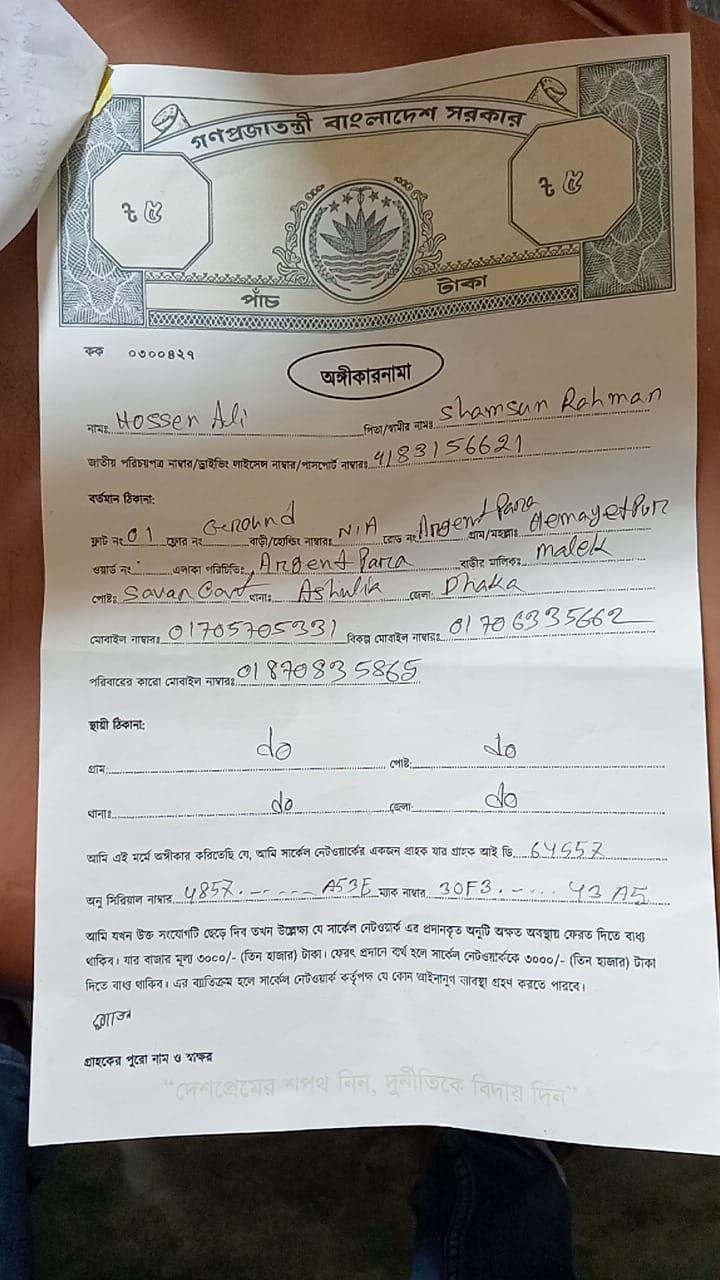 গণপ্রজাতন্ত্রী বাংলাদেশ সরকার
৳ ৫ ৳ ৫
পাঁচ টাকা
কক ০৩০০৪২৭
অঙ্গীকারনামা
নামঃ Hossen Ali পিতা/স্বামীর নামঃ Shamsun Rahman
জাতীয় পরিচয়পত্র নাম্বার/ড্রাইভিং লাইসেন্স নাম্বার/পাসপোর্ট নাম্বারঃ 4183156621
বর্তমান ঠিকানা:
ফ্লাট নং 01 ফ্লোর নং Ground বাড়ী/হোল্ডিং নাম্বারঃ N/A রোড নং Argent Para গ্রাম/মহল্লাঃ Hemayetpur
ওয়ার্ড নং এলাকা পরিচিতিঃ Argent Para বাড়ীর মালিকঃ malek
পোষ্টঃ Savar Cant থানাঃ Ashulia জেলা: Dhaka
মোবাইল নাম্বারঃ 01705705331 বিকল্প মোবাইল নাম্বারঃ 01706335662
পরিবারের কারো মোবাইল নাম্বারঃ 01870835865
স্থায়ী ঠিকানা:
গ্রাম: do পোষ্ট: do
থানাঃ do জেলা: do
আমি এই মর্মে অঙ্গীকার করিতেছি যে, আমি সার্কেল নেটওয়ার্কের একজন গ্রাহক যার গ্রাহক আই ডি 64557
অনু সিরিয়াল নাম্বার 4857.------ A53E ম্যাক নাম্বার 30F3.----- 43 A5
আমি যখন উক্ত সংযোগটি ছেড়ে দিব তখন উল্লেক্ষ্য যে সার্কেল নেটওয়ার্ক এর প্রদানকৃত অনুটি অক্ষত অবস্থায় ফেরত দিতে বাধ্য
থাকিব। যার বাজার মূল্য ৩০০০/- (তিন হাজার) টাকা। ফেরৎ প্রদানে ব্যর্থ হলে সার্কেল নেটওয়ার্ককে ৩০০০/- (তিন হাজার) টাকা
দিতে বাধ্য থাকিব। এর ব্যতিক্রম হলে সার্কেল নেটওয়ার্ক কর্তৃপক্ষ যে কোন আইনানুগ ব্যবস্থা গ্রহণ করতে পারবে।
গ্রাহকের পুরো নাম ও স্বাক্ষর
“দেশপ্রেমের শপথ নিন, দুর্নীতিকে বিদায় দিন”